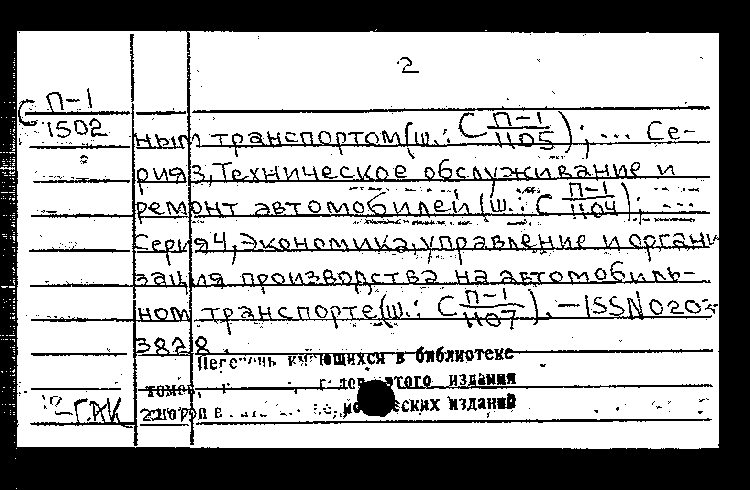 2
С П-1
1502
ным транспортом (ш.: С П-1/1105); ... Се-
рия 3, Техническое обслуживание и
ремонт автомобилей (ш.: С П-1/1104); ...
Серия 4, Экономика, управление и органи
зация производства на автомобиль-
ном транспорте (ш.: С П-1/1107). — ISSN 0203-
3828.
Перечень имеющихся в библиотеке
томов, этого издания
изданий
-ГАК